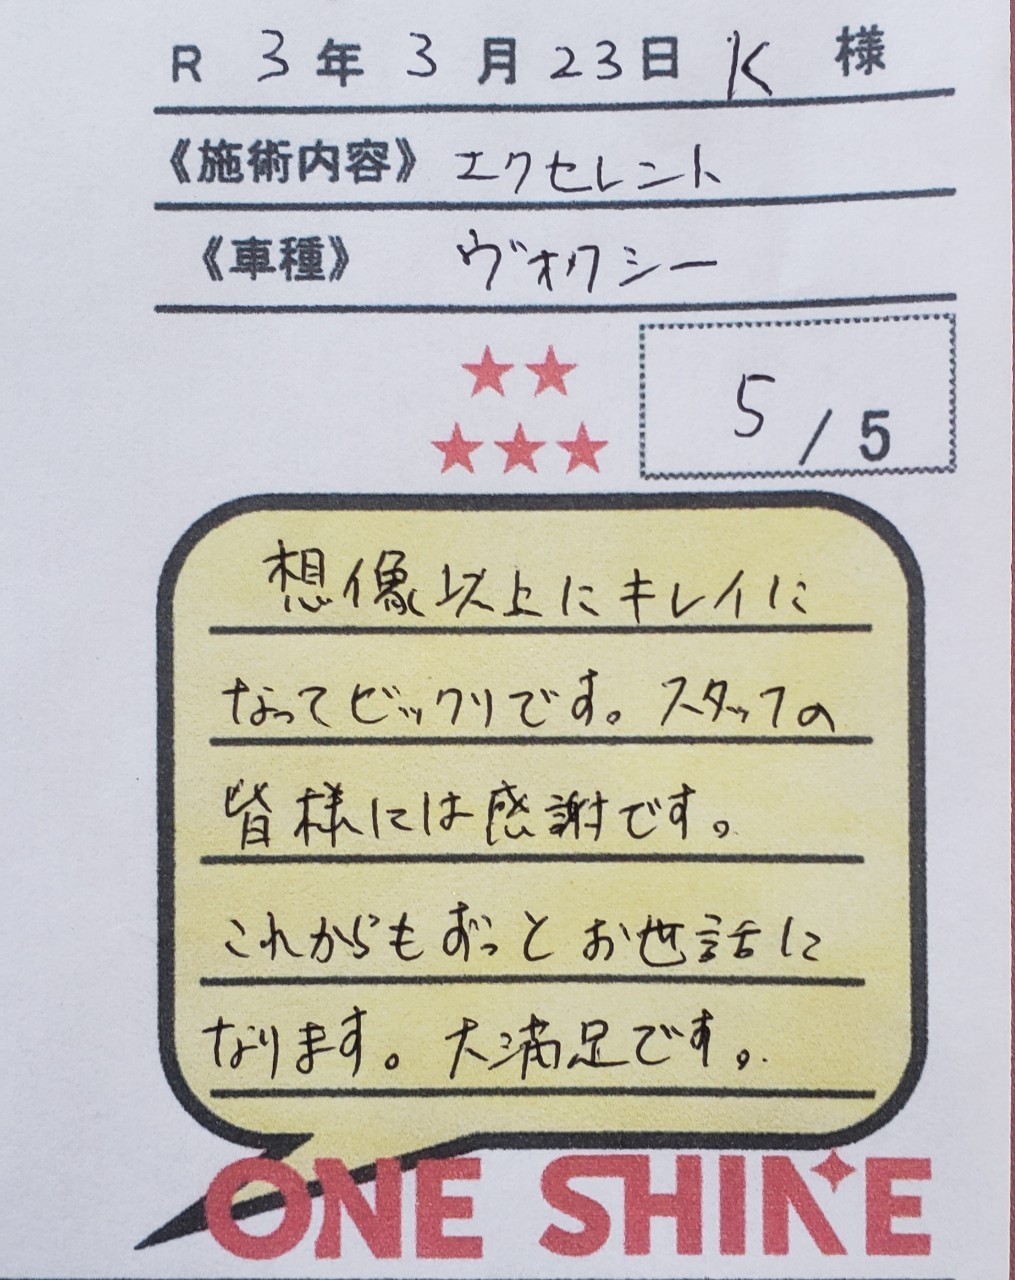 R 3年 3月 23日 K 様
《施術内容》 エクセレント
《車種》 ヴォクシー
5/5
想像以上にキレイに
なってビックリです。スタッフの
皆様には感謝です。
これからもずっとお世話に
なります。大満足です。
ONE SHINE